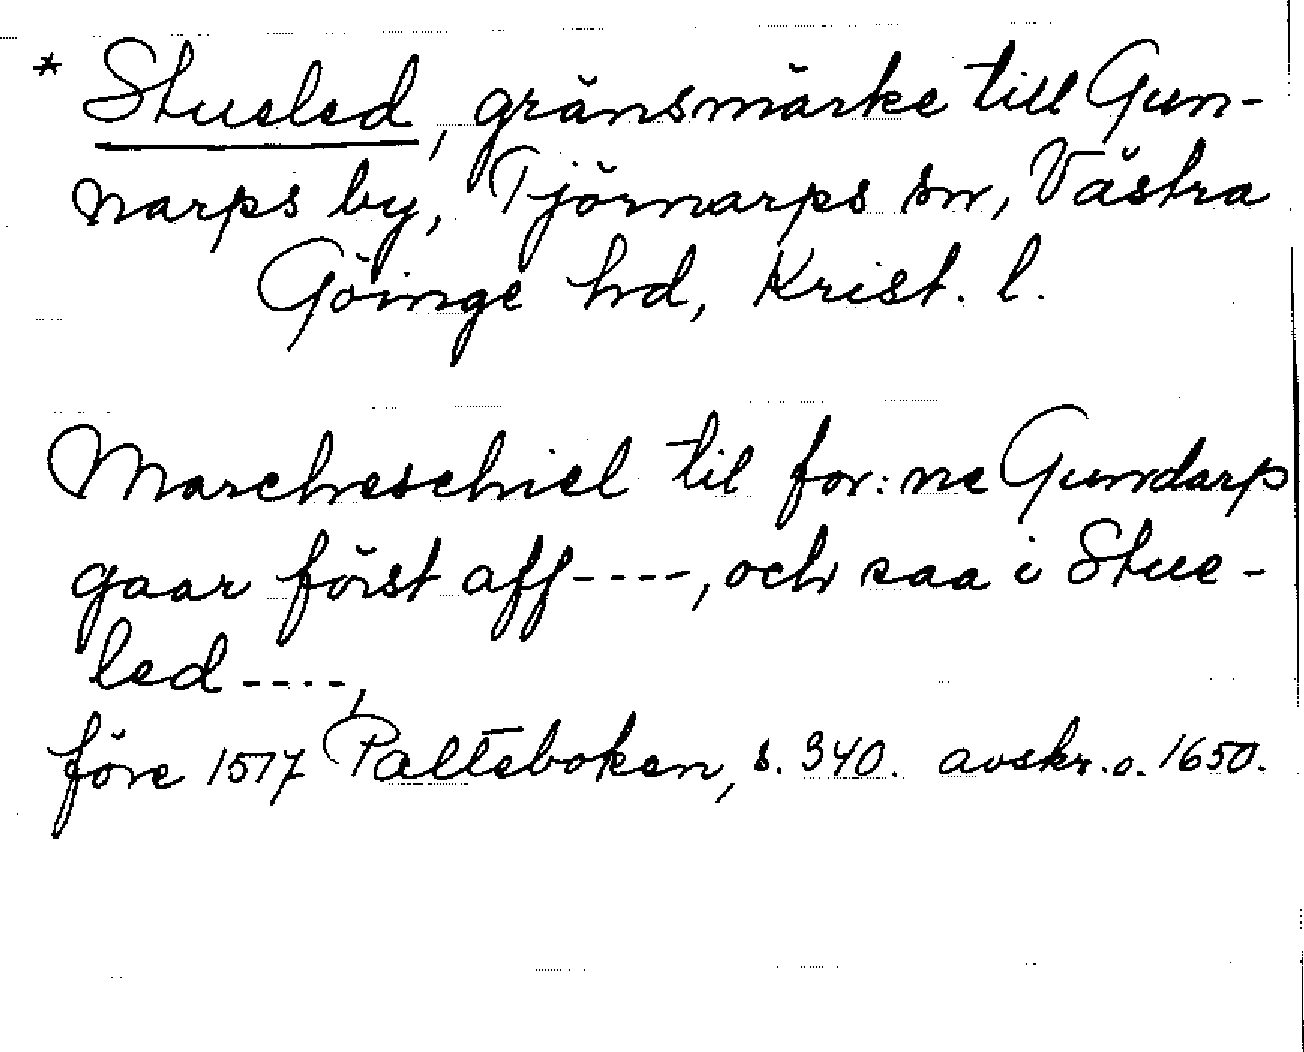 * Stueled, gränsmärke till Gun-
narps by, Tjörnarps sn, Västra
Göinge hd, Krist. l.
Marcheschiel til for:ne Gundarp
gaar först aff----, och saa i Stue-
led----,
före 1517 Palteboken, s. 340. avskr. o. 1650.